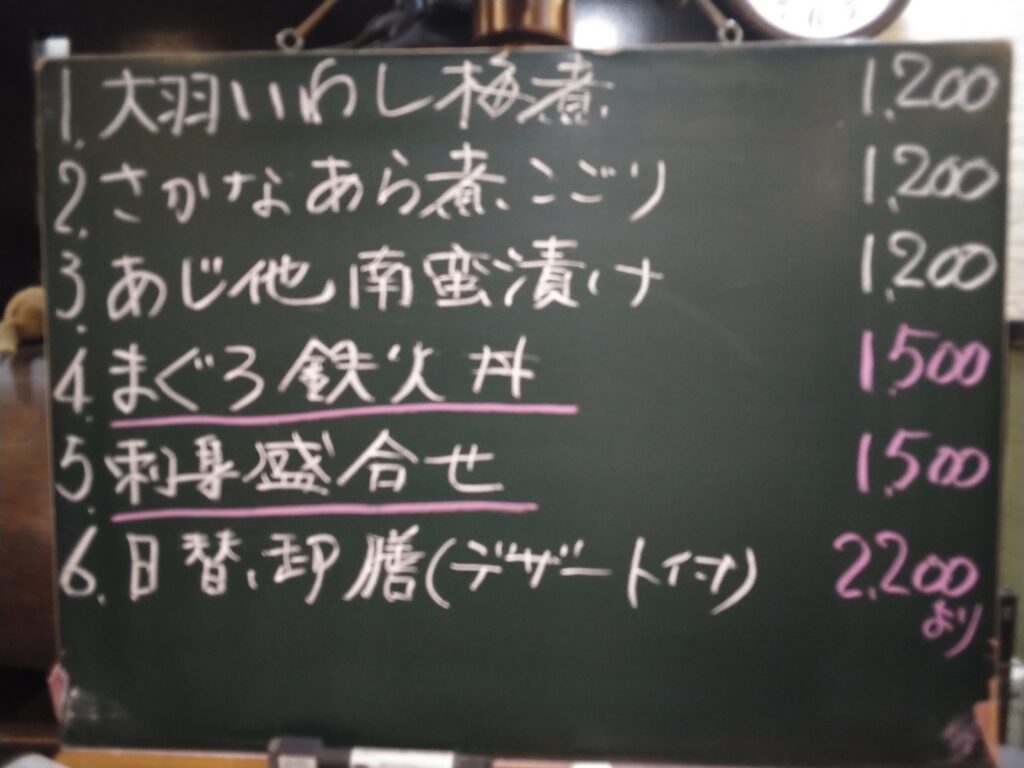 1. 大羽いわし梅煮 1,200
2. さかなあら煮こごり 1,200
3. あじ他南蛮漬け 1,200
4. まぐろ鉄火丼 1,500
5. 刺身盛合せ 1,500
6. 日替、御膳(デザート付) 2,200
より